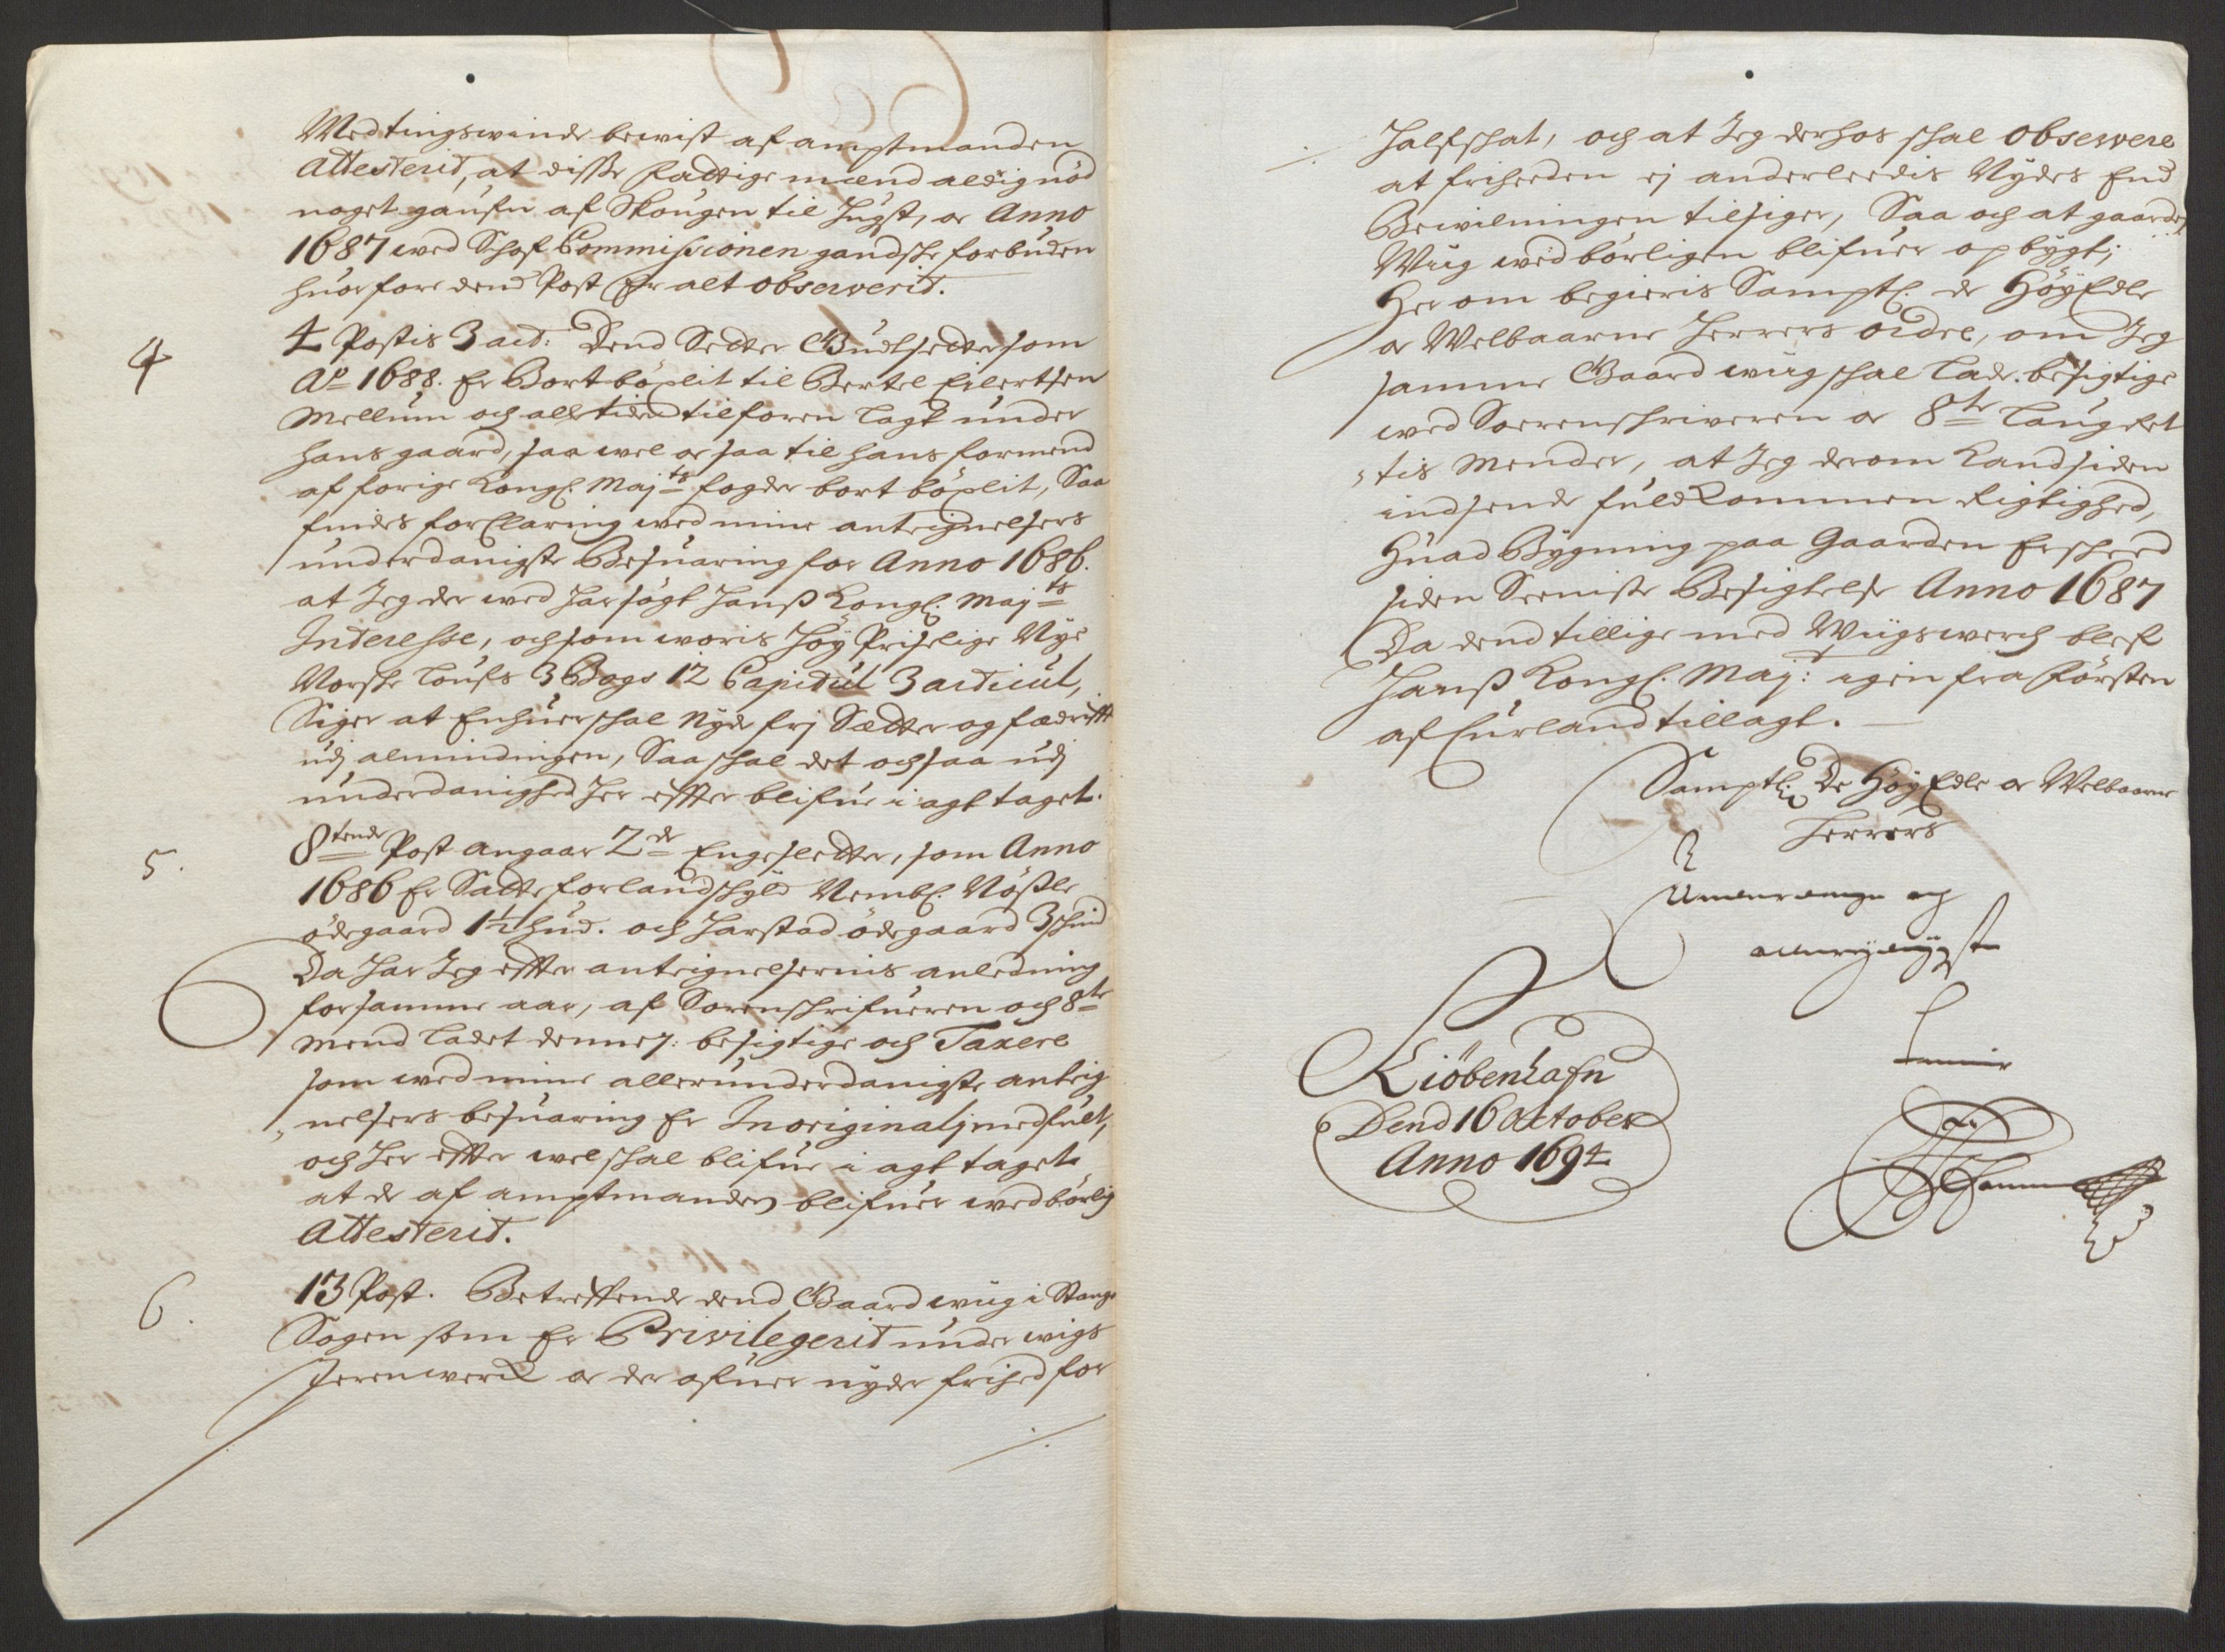 Med tingswinde bewist af amptmanden
Attesterit, at disse fattige mænd aldrig nød
noget gaufn af Skougen til Hugst, or Anno
1687 wed Schof Commissionen gandske forbuden
huorfore dend Post er alt observerit.
4
4 Postis 3 art: Dend Setter Gudlsetter som
Ao 1688. er Bortböxlit til Bertel Eilertsen
Mellum och alle tider tilforen lagt under
hans gaard, saa wel or saa til hans formend
af forige Kongl. Majts fogder bort böxlit, Saa
findes forklaring wed mine anteignelsers
underdanigste Besuaring for Anno 1686.
at Jeg der wed har søgt Hanß Kongl. Majts
Interesse, och som woris Höy Priselige Nye
Norske Loufs 3 Bogs 12 Capitul 3 articul,
Siger at Enhuer skal Nyde frj Sætter og fædrifft
udj almindingen, Saa skal det ochsaa udj
underdanighed her effter blifue i agt taget.
5.
8tende Post angaar 2de Engesletter, som Anno
1686 er Satte for landskyld Nembl. Nøßle
ödegaard 1½ hud. och Harstad ödegaard 3 skind
Da har Jeg effter anteignelsernis anledning
for samme aar, af Sorenskrifueren och 8te
Mend ladet dennes: besigtige och Taxere
som wed mine allerunderdanigste anteig
nelsers besuaring er In originalj medfult,
och her effter wel skal blifue i agt taget
at de af amptmanden blifuer wedbörlig
Attesterit.
6.
13 Post. Betreffende dend Gaard wiig i Stange
Sogen som er Privilegerit under wigs
Jernwerck or der ofuer nyder frihed for
Half skat, och at Jeg derhos skal observere
at friheeden ej anderleedis Nydes End
Bewilningen tilsiger, Saa och at gaarden
Wiig wedbörligen blifuer opbygt;
Her om begieris Samptl. de HöyEdle
or Welbaarne Herrers ordre, om Jeg
samme Gaard wiig skal lade besigtige
wed Soerenskriveren or 8te Laugret
tis Mender, at Jeg derom Kand siden
indsende fuldkommen Rigtighed,
Huad Bygning paa Gaarden er skeed
siden Seeniste Besigtelse Anno 1687
Da dend tillige med Wiigswerch blef
Hanß Kongl. Maj: igen fra försten
af Curland tillagt.
Samptl: De HöyEdle or Welbaarne
Herrers
och
Kiöbenhafn
Dend 16 October
Anno 1694